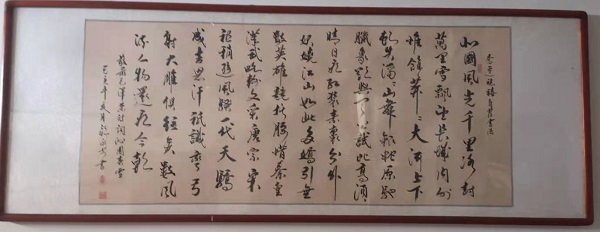 北國風光千里冰封
萬里雪飄望長城內外
惟餘莽〻大河上下
頓失滔〻山舞銀蛇原馳
臘象欲與天公試比高須
晴日看紅裝素裹分外
妖嬈江山如此多嬌引無
數英雄競折腰惜秦皇
漢武略輸文采唐宗宋
祖稍遜風騷一代天驕
成吉思汗祇識彎弓
射大雕俱往矣數風
流人物還看今朝
敬錄毛澤東主席詞沁園春雪
年 月 書